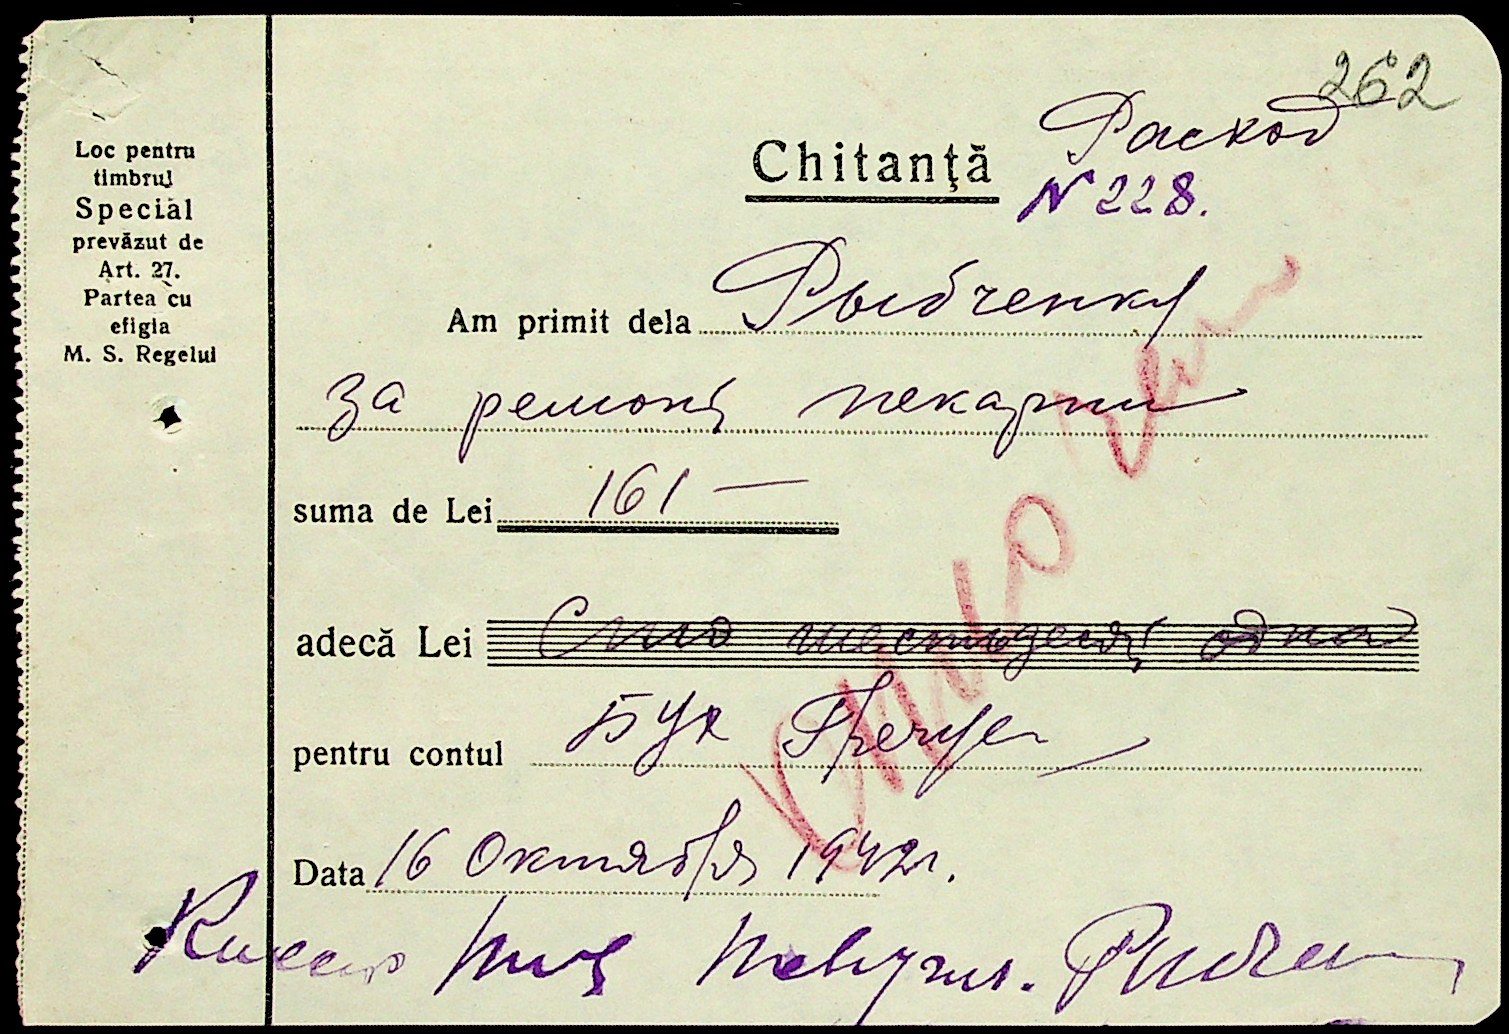 262
Loc pentru
timbrul
Special
prevăzut de
Art. 27.
Partea cu
efigia
M. S. Regelui
Chitanţă
Расход
N 228.
Am primit dela Рыбченку
за ремонт пекарни
suma de Lei 161 —
adecă Lei Сто шестьдесят один
pentru contul Бух
Data 16 Октября 1942 г.
Кассир